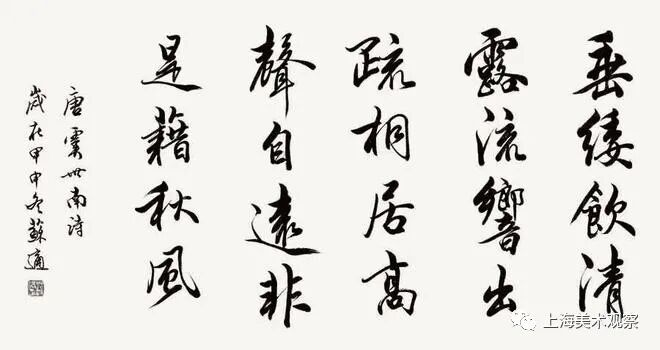 垂緌飲清
露流響出
疏桐居高
聲自遠非
是藉秋風
唐虞世南詩
歲在甲申冬蘇適
上海美术观察